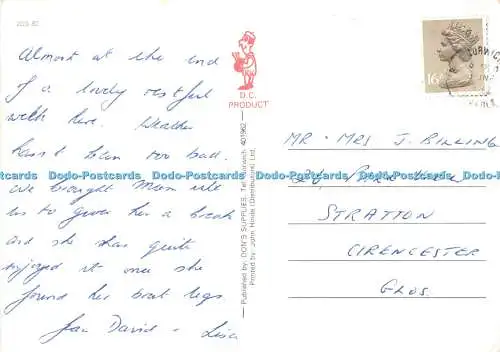 Almost at the end
of a lovely restful
week here. Weather
hasn't been too bad.
We brought Mum with
us to give her a break
and she has quite
enjoyed it once she
found her boat legs.
Jan David - Lisa
D.C.
PRODUCT
Published by: DON'S SUPPLIES. Tel: Norwich 401962
Printed by: John Hinde (Distributors) Ltd.
16
NORWICH
MR · MRS J. BILLING
STRATTON
CIRENCESTER
GLOS.
Dodo-Postcards Dodo-Postcards Dodo-Postcards Dodo-Postcards Dodo-Postcards